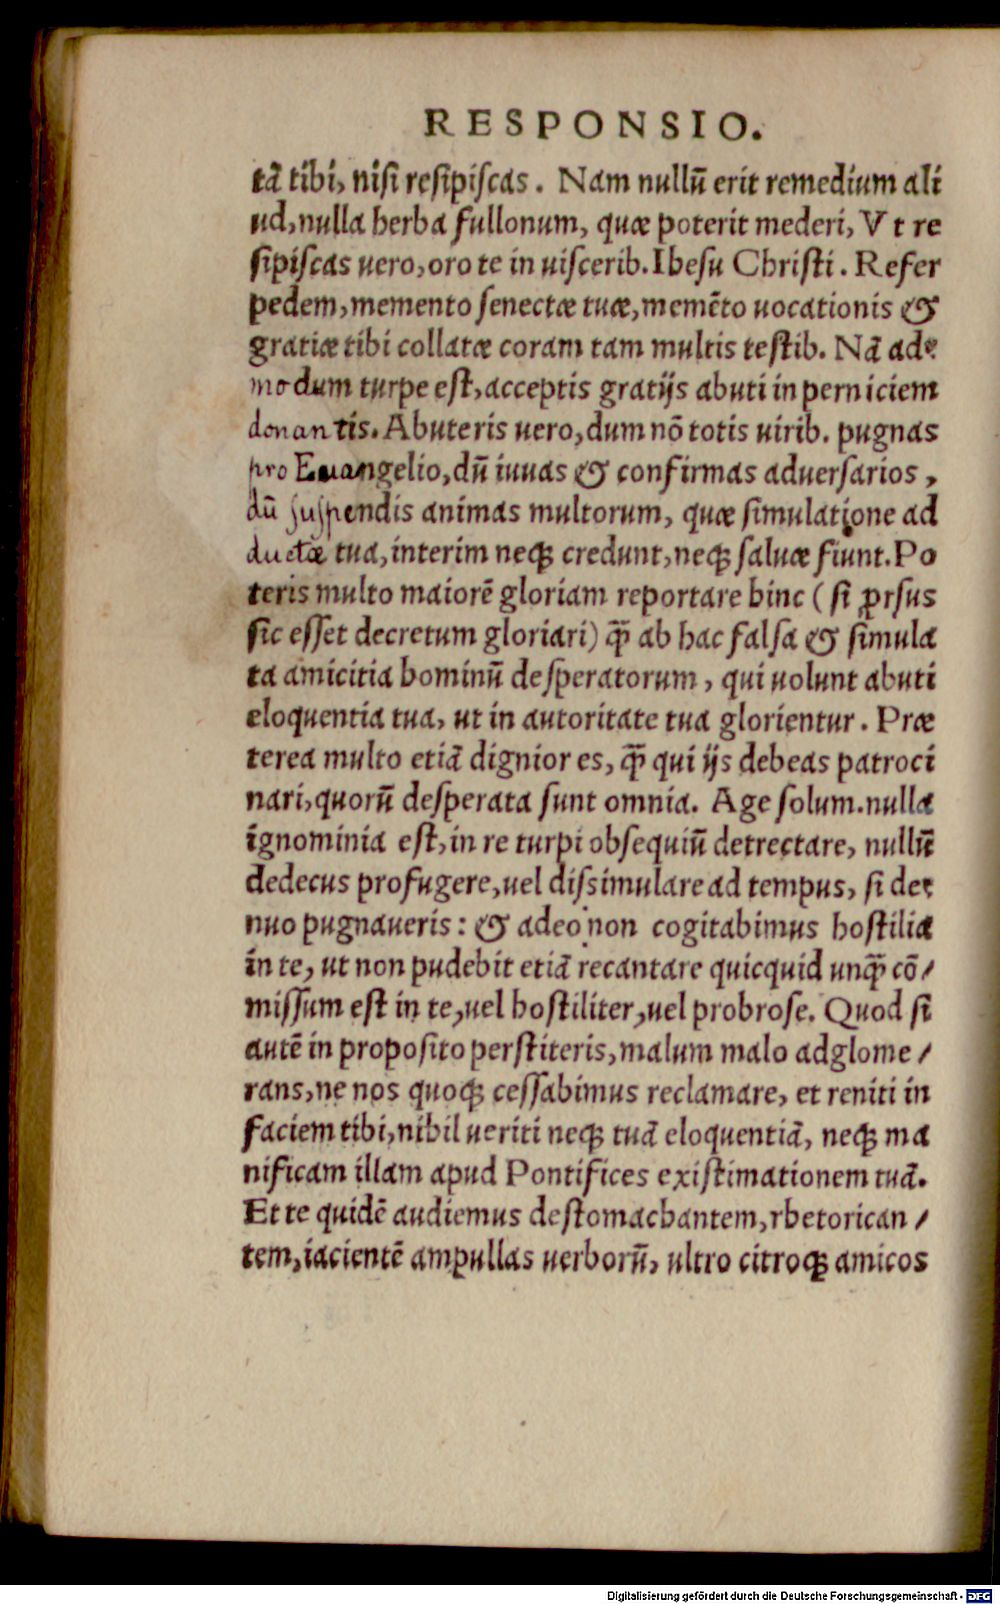 RESPONSIO.
tã tibi, nisi resipiscas. Nam nullũ erit remedium ali
ud, nulla herba fullonum, quæ poterit mederi, Vt re
sipiscas uero, oro te in uiscerib. Ihesu Christi. Refer
pedem, memento senectæ tuæ, memẽto uocationis &
gratiæ tibi collatæ coram tam multis testib. Nã ad
modum turpe est, acceptis gratijs abuti in perniciem
donantis. Abuteris uero, dum nõ totis uirib. pugnas
pro Euangelio, dũ iuuas & confirmas aduersarios,
dũ suspendis animas multorum, quæ simulatione ad
ductæ tua, interim neqꝫ credunt, neqꝫ saluæ fiunt. Po
teris multo maiorẽ gloriam reportare hinc (si ꝓrsus
sic esset decretum gloriari) q̃ ab hac falsa & simula
ta amicitia hominũ desperatorum, qui uolunt abuti
eloquentia tua, ut in autoritate tua glorientur. Præ
terea multo etiã dignior es, q̃ qui ijs debeas patroci
nari, quorũ desperata sunt omnia. Age solum. nulla
ignominia est, in re turpi obsequiũ detrectare, nullũ
dedecus profugere, uel dissimulare ad tempus, si de
nuo pugnaueris: & adeo non cogitabimus hostilia
in te, ut non pudebit etiã recantare quicquid unq̃ cõ/
missum est in te, uel hostiliter, uel probrose. Quod si
autẽ in proposito perstiteris, malum malo adglome/
rans, ne nos quoqꝫ cessabimus reclamare, et reniti in
faciem tibi, nihil ueriti neqꝫ tuã eloquentiã, neqꝫ ma
nificam illam apud Pontifices existimationem tuã.
Et te quidẽ audiemus destomachantem, rhetorican/
tem, iacientẽ ampullas uerborũ, ultro citroqꝫ amicos
Digitalisierung gefördert durch die Deutsche Forschungsgemeinschaft - DFG